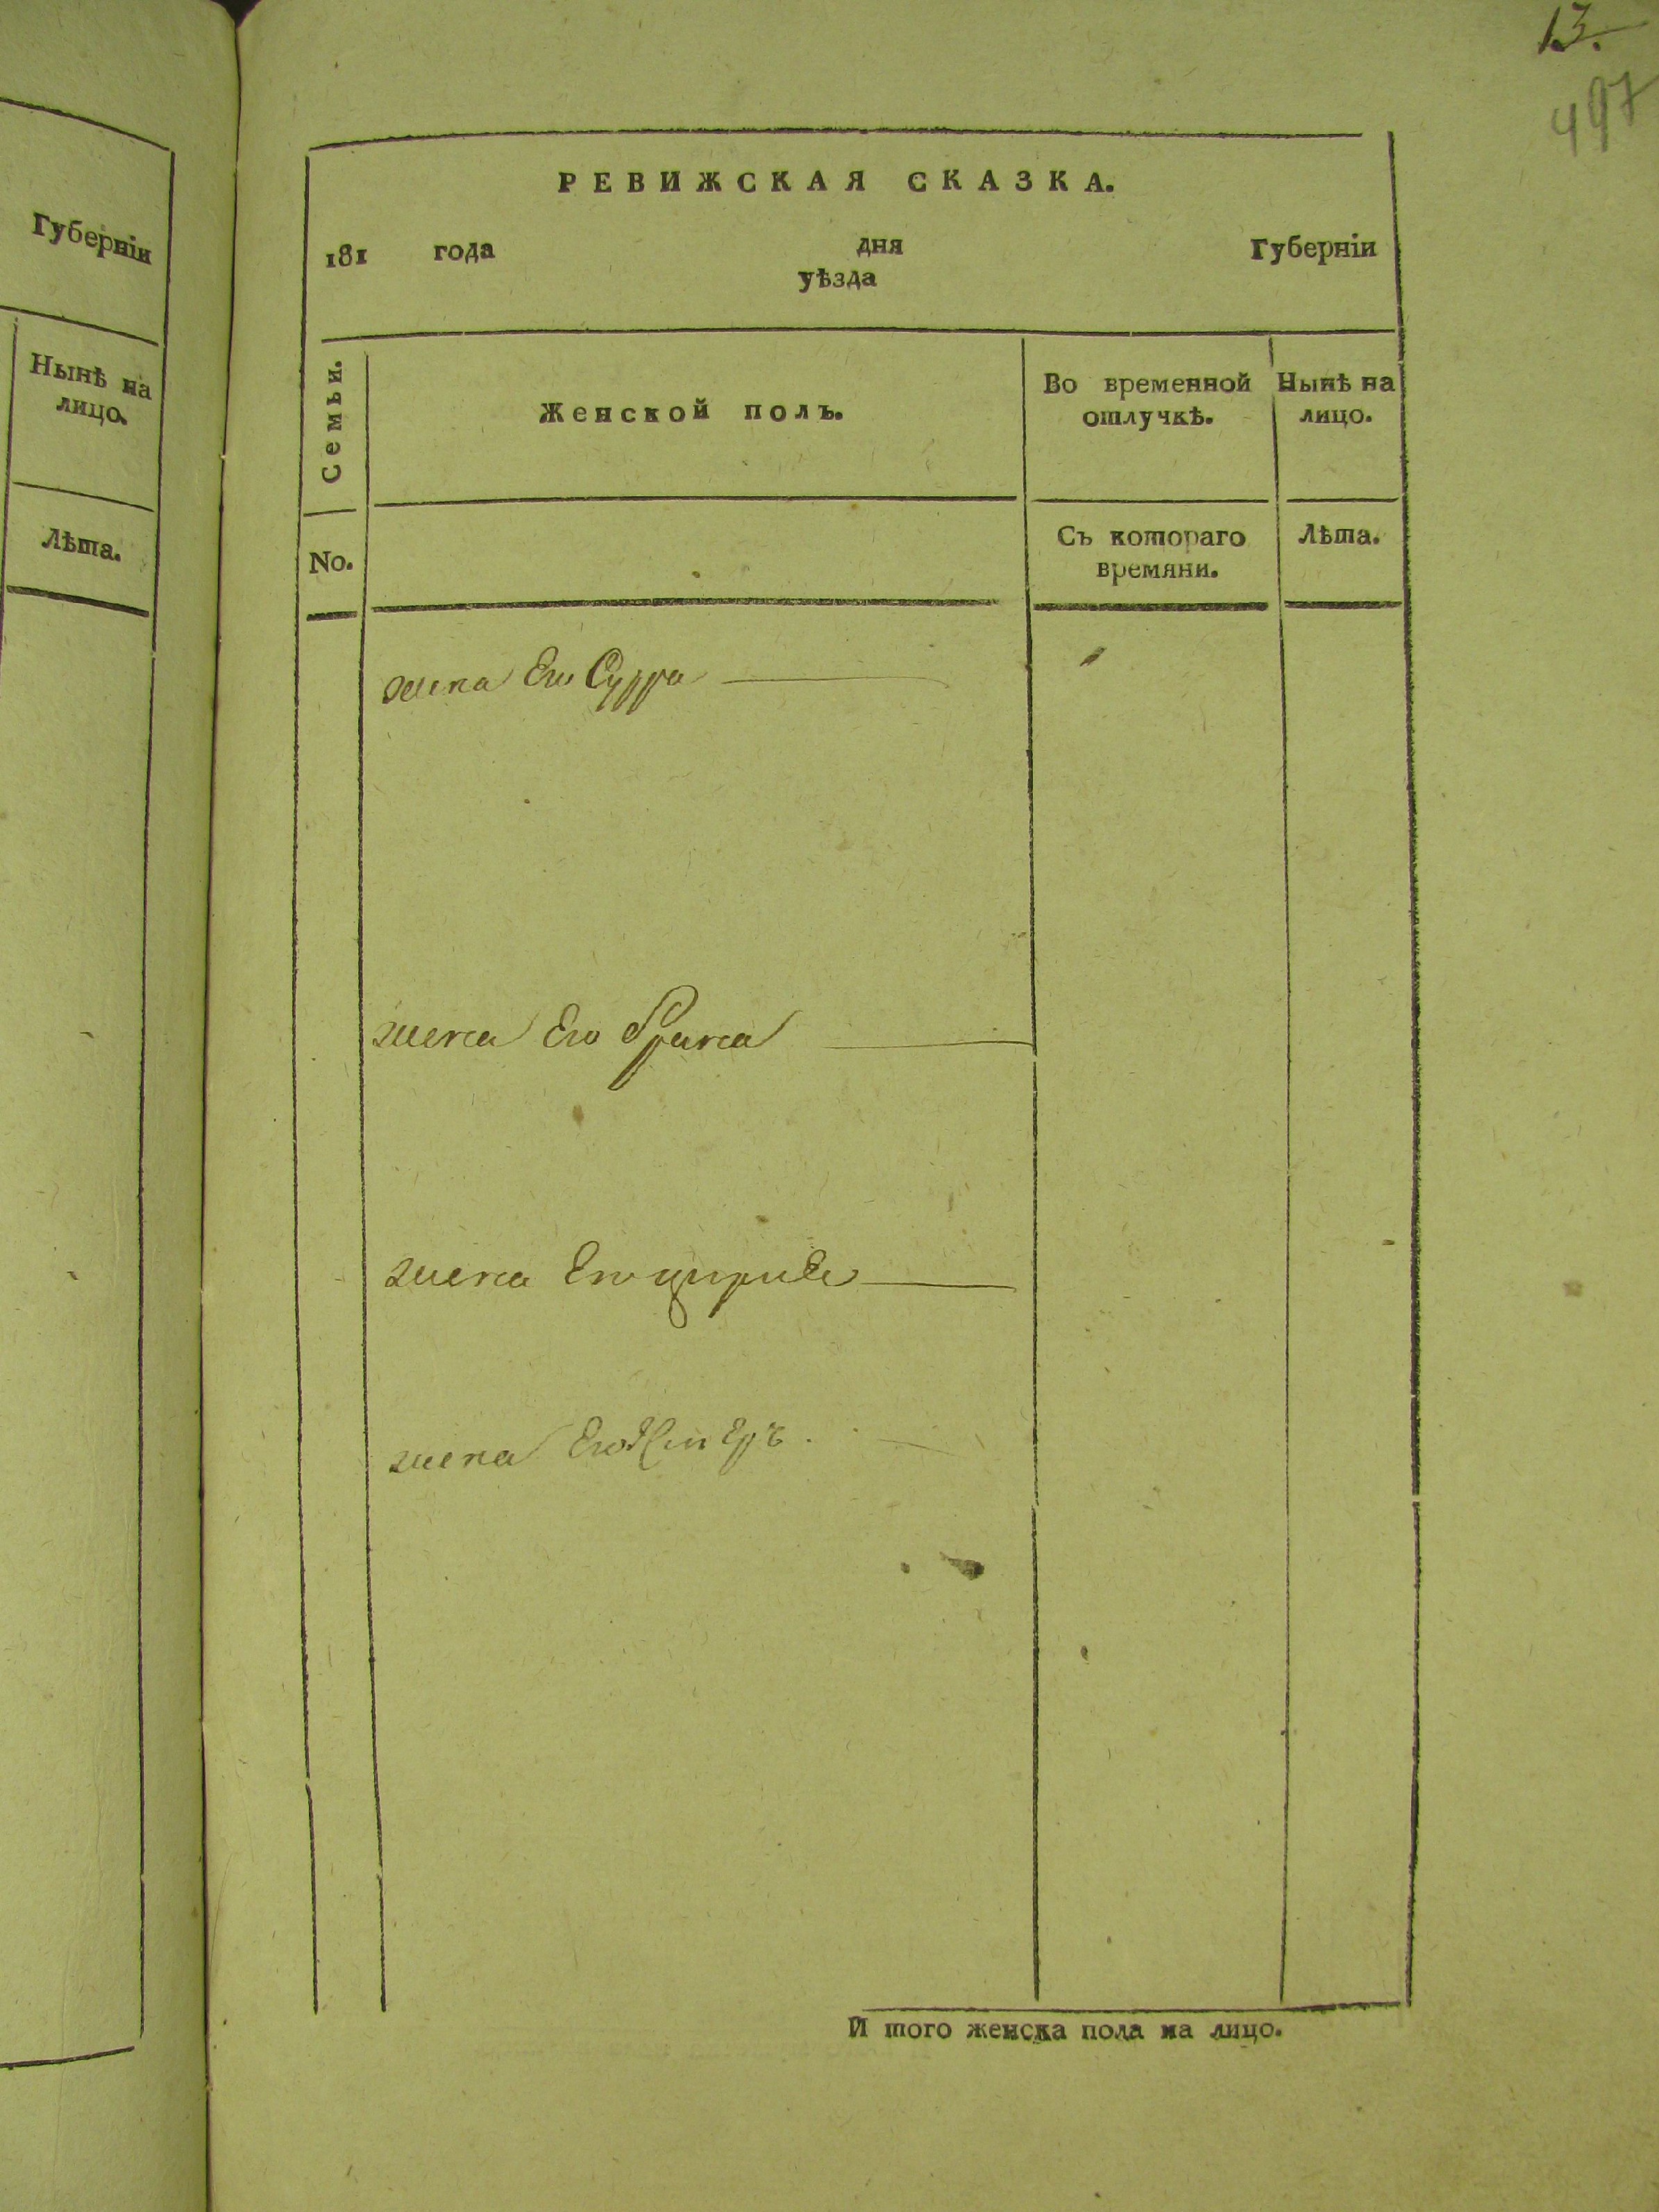 13.
497
Губерніи
Нынѣ на
лицо.
Лѣта.
РЕВИЖСКАЯ СКАЗКА.
181 года дня Губерніи
уѣзда
Семьи.
Женской полъ.
Во временной
отлучкѣ.
Нынѣ на
лицо.
No.
Съ котораго
времяни.
Лѣта.
жена Его Сурра
жена Его Фрина
жена Его
жена Его
И того женска пола на лицо.